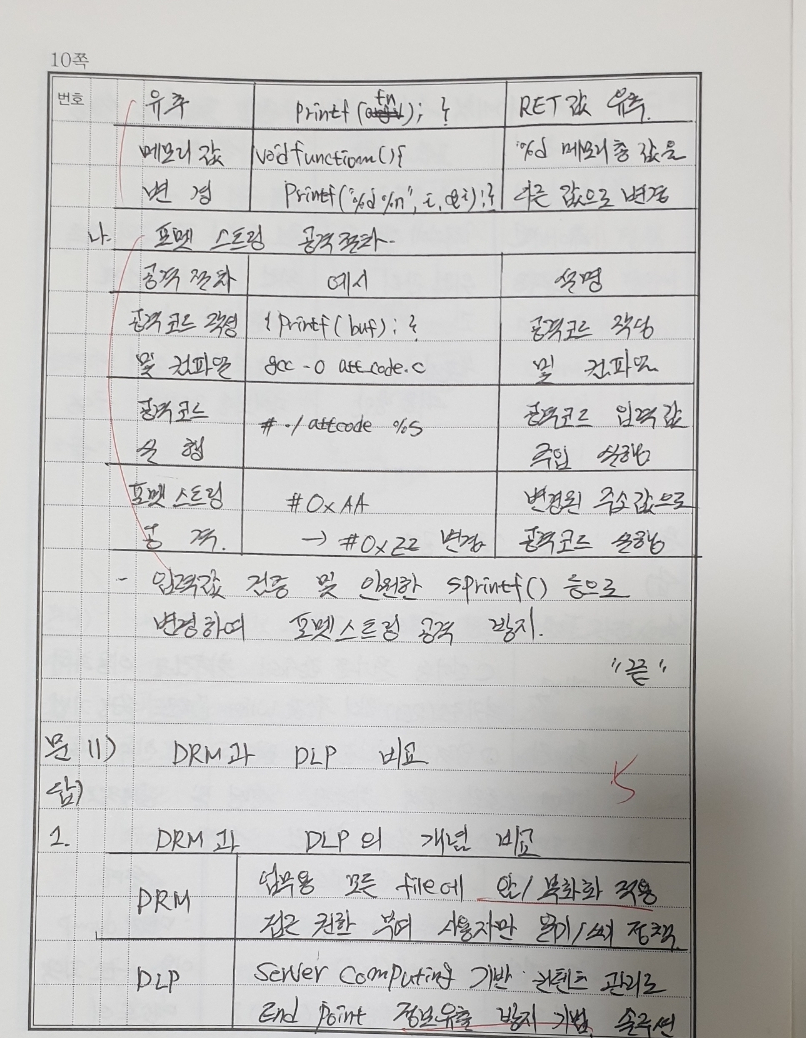 10쪽
번호
유추 printf(fn); } RET 값 유추.
메모리 값 void function(){ %d 메모리 총 값을
변경 Printf("%d%n", i, &i);} 다른 값으로 변경
나. 포맷 스트링 공격 절차.
공격 절차 예시 설명
공격코드 작성 { printf(buf); } 공격코드 작성
및 컴파일 gcc -o attcode.c 및 컴파일
공격코드 # ./attcode %s 공격코드 입력값
실행 주입 실행
포맷 스트링 #0xAA 변경된 주소값으로
공격. → #0x22 변경 공격코드 실행
- 입력값 검증 및 안전한 sprintf() 등으로
변경하여 포맷스트링 공격 방지.
"끝"
문 11) DRM과 DLP 비교
답) 5
1. DRM과 DLP의 개념 비교
DRM 업무용 모든 file에 암/복호화 적용
접근 권한 부여 사용자만 읽기/쓰기 정책
DLP Server Computing 기반 컨텐츠 관리로
End Point 정보유출 방지 기법, 솔루션